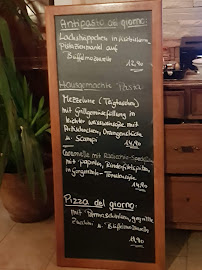 Antipasto del giorno:
Lachshäppchen in
auf
Büffelmozzarella
12,90
Hausgemachte Pasta
Mezzelune (Teigtaschen)
mit Grillgemüsefüllung in
leichter
Artischocken, Orangenstücke
u. Scampi
14,90
mit Radicchio-Speck
mit Paprika, Rinderfiletspitzen
in Gorgonzola- Tomatensoße
14,90
Pizza del giorno:
mit Parmaschinken, gegrillte
Zucchini u. Büffelmozzarella